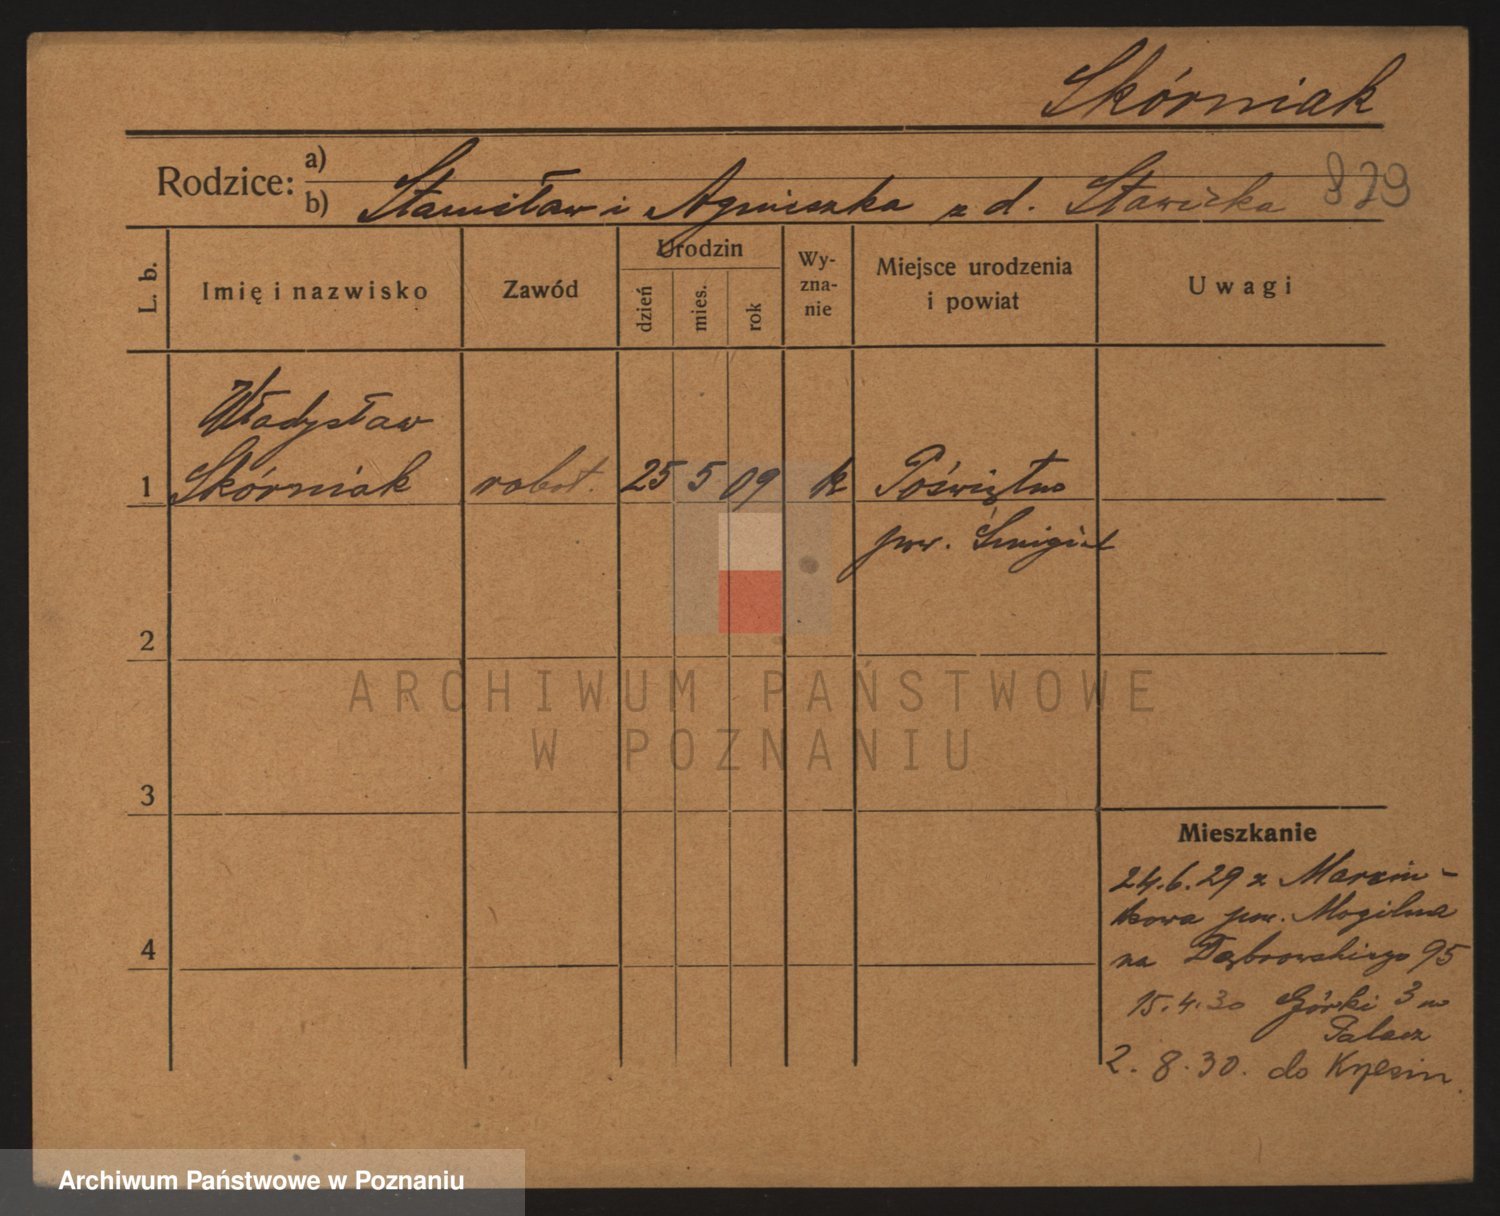 Skórniak
Rodzice:
a)
b) Stanisław i Agnieszka z d. Stawicka 829
L. b.
Imię i nazwisko
Zawód
Urodzin
dzień
mies.
rok
Wy-
zna-
nie
Miejsce urodzenia
i powiat
Uwagi
Władysław
1 Skórniak robot. 25 5 09 k Poświętno
pow. Śmigiel
2
ARCHIWUM PAŃSTWOWE
W POZNANIU
3
Mieszkanie
24.6.29 z Marcin-
kowa pow. Mogilno
4
na Dąbrowskiego 95
15.4.30 Górki 3
2.8.30. do
Archiwum Państwowe w Poznaniu